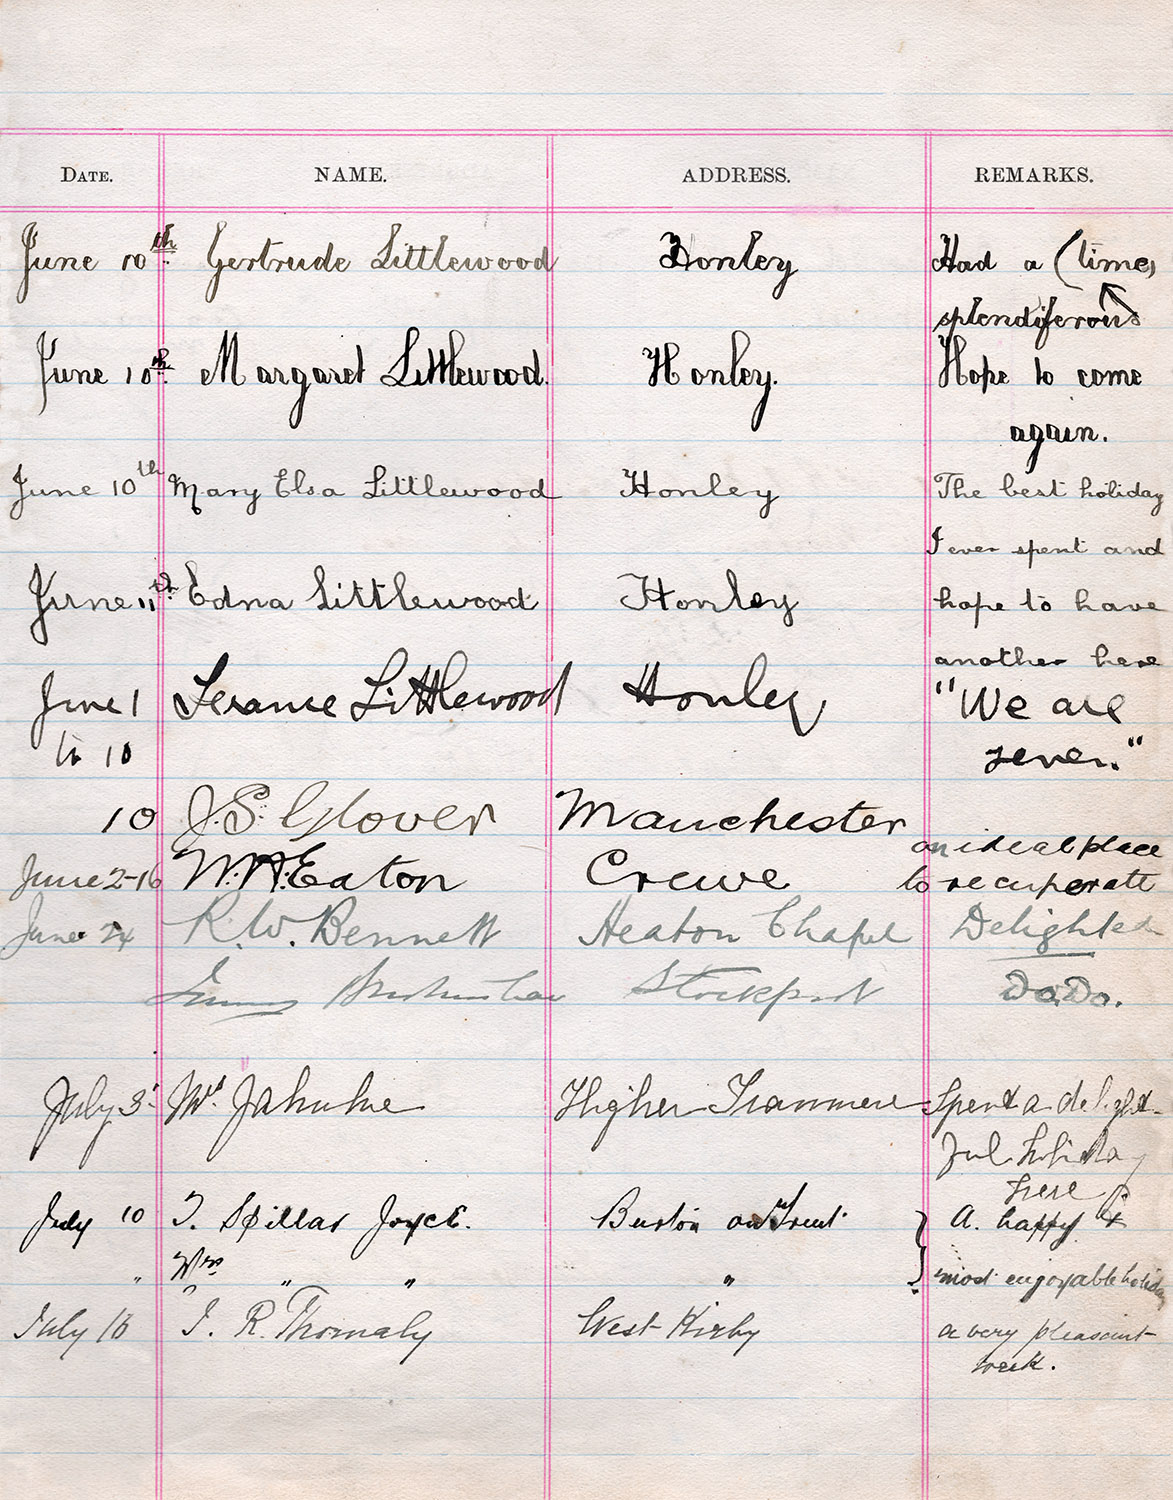 DATE. NAME. ADDRESS. REMARKS.
June 10th Gertrude Littlewood Honley Had a (time,
splendiferous
June 10th. Margaret Littlewood. Honley. Hope to come
again.
June 10th Mary Elsa Littlewood Honley The best holiday
I ever spent and
June 11th. Edna Littlewood Honley hope to have
another here
June 1 Littlewood Honley "We are
to 10 seven."
10 J.S. Glover Manchester
an ideal place
June 2-16 W.H. Eaton Crewe to recuperate
June 24 R.W. Bennett Heaton Chapel Delighted
Stockport Do. Do.
July 3. Mrs. Higher Tranmere Spent a delight-
ful holiday
here
July 10 T. Spillar Joyce. Burton on Trent. A. happy &
" Mrs " " " most enjoyable holiday
July 16 R. Thomaly West Kirby a very pleasant
week.